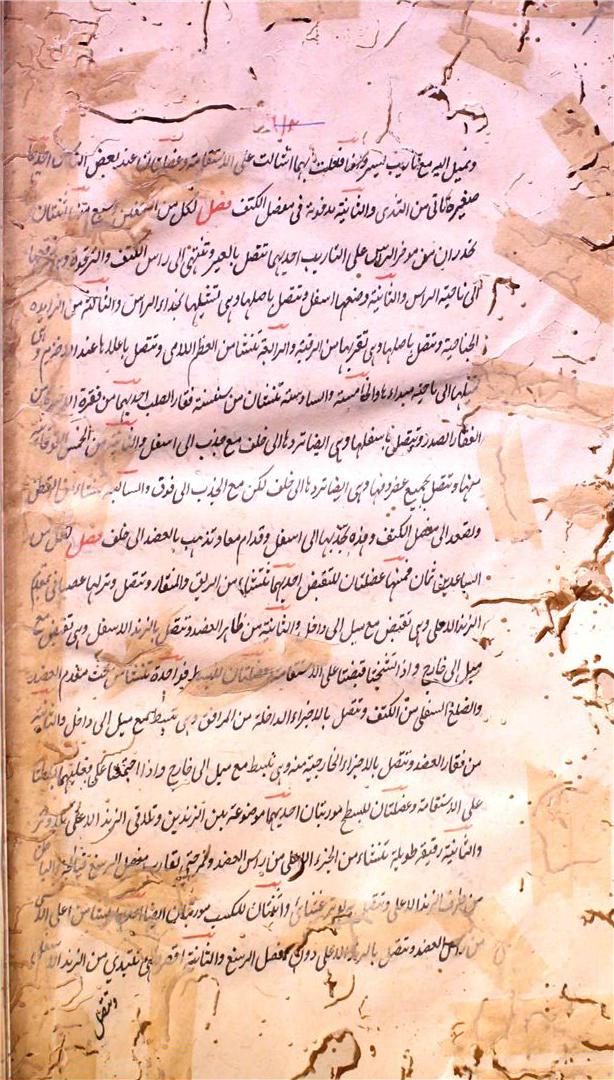 وتميل اليه مع تاريب يسير واذا فعلت بهما انشالت على الاستقامة وعضلتان عند بعض الناس احديهما
صغيرة تاتى من الثدى والثانية مدفونة فى مفصل الكتف فصل لكل من الكتفين سبع منها اثنتان
تحدران من موخر الراس على التاريب احديهما تتصل بالعير وتنتهى الى راس الكتف والترقوة وهى ترفعها
الى ناحية الراس والثانية وضعها اسفل وتتصل باصلها وهى تشيلها بحذاء الراس والثالثة من الزايدة
الجناحية وتتصل باصلها وهى تقربها من الرقبة والرابعة تنشا من العظم اللامى وتتصل باعلاها عند الاخرم وهى
تشيلها الى ناحية مبداءها والخامسة والسادسة تنشئان من سنسنة فقار الصلب احديهما من فقرة
الفقار الصدر وتتصل باسفلها وهى ايضا تردها الى خلف مع جذب الى اسفل والثانية من الخمس الفوقانية
منها وتتصل بجميع غضروفها وهى ايضا تردها الى خلف لكن مع الجذب الى فوق والسابعة تنشا من القطن
وتصعد الى مفصل الكتف وهذه تجذبها الى اسفل وقدام معا وتذهب بالعضد الى خلف فصل لكل من
الساعدين ثمان فمنها عضلتان للقبض احديهما تنشا من الريق والمنقار وتتصل وترلها عصبانى بمقدم
الزند الاعلى وهى تقبض مع ميل الى داخل والثانية من ظاهر العضد وتتصل بالزند الاسفل وهى تقبض مع
ميل الى خارج واذا تشنجتا قبضتا على الاستقامة وعضلتان للبسط فواحدة تنشا من تحت مقدم العضد
والضلع السفلى من الكتف وتتصل بالاجزاء الداخلة من المرافق وهى تبسط مع ميل الى داخل والثانية
من فقار العضد وتتصل بالاجزاء الخارجية منه وهى تبسط مع ميل الى خارج واذا اجتمعتا على فعليهما انبسط
على الاستقامة وعضلتان للبسط موربتان احديهما موضوعة بين الزندين وتلاقى الزند الاعلى بلا وتر
والثانية رقيقة طويلة تنشاء من الجزء الاعلى من راس العضد الخارجى تقارب مفصل الرسغ
من طرف الزند الاعلى وتتصل به بوتر غشائى واثنتان للكب موربتان ايضا احديهما تنشا من اعلى الانسى
من راس العضد وتتصل بالزند الاعلى دون مفصل الرسغ والثانية اقصر وهى تبتدى من الزند الاسفل
وتتصل